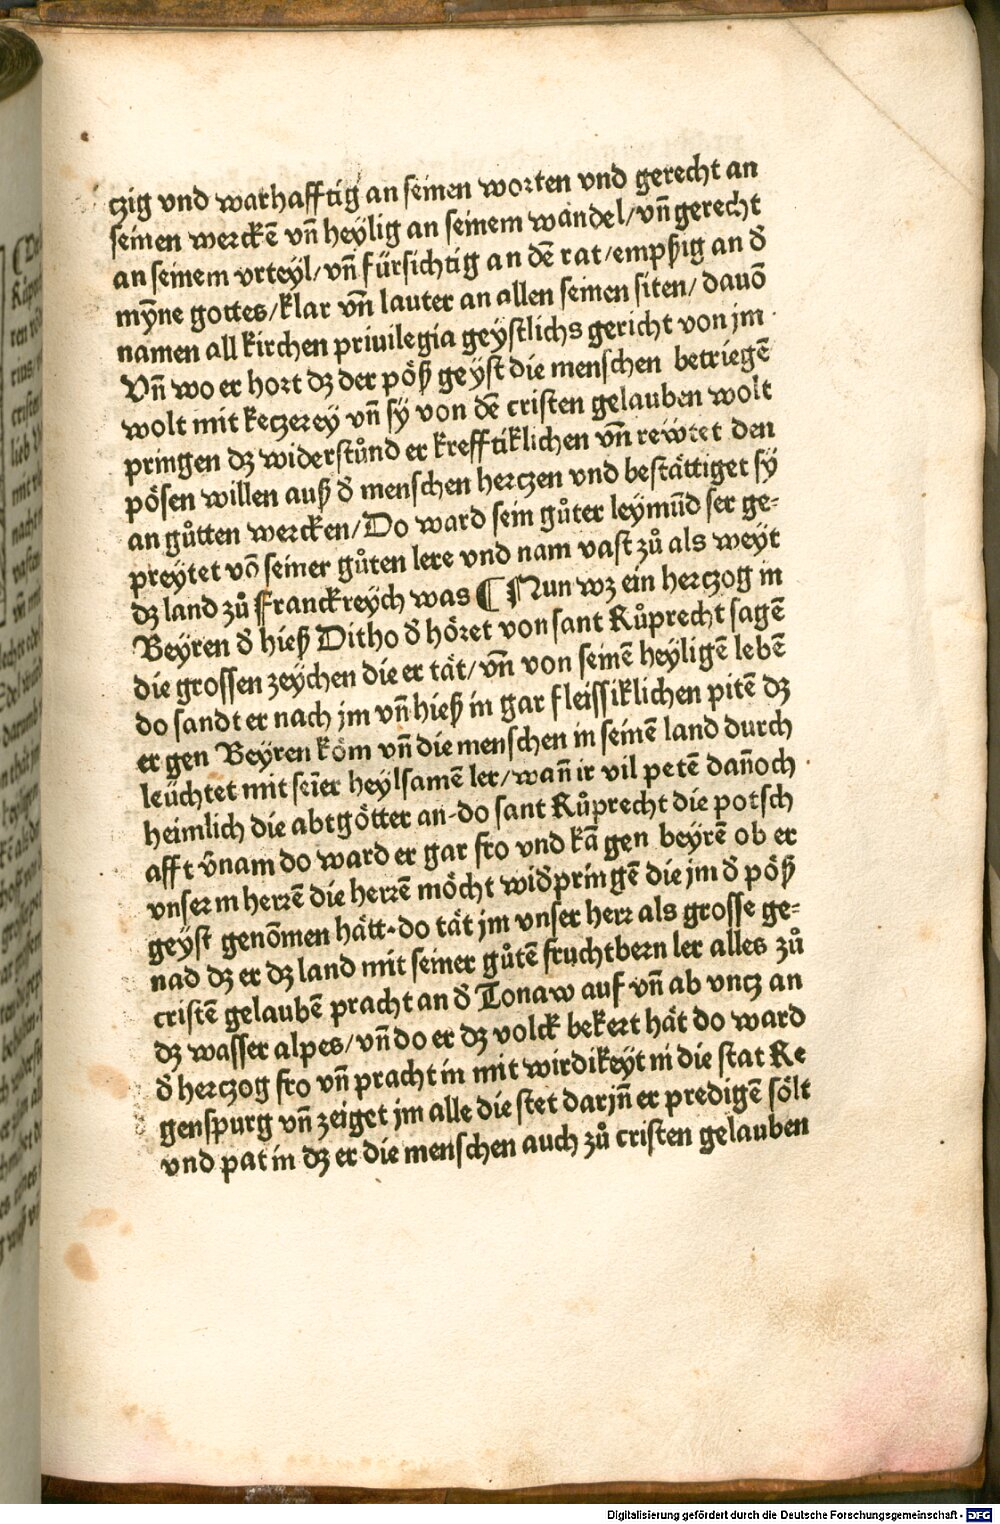 czig vnd warhafftig an seinen worten vnd gerecht an
seinen werckē vñ heylig an seinem wandel/vñ gerecht
an seinem vrteyl/vñ fürsichtig an dē rat/empßig an đ
mȳne gottes/klar vñ lauter an allen seinen siten/dauō
namen all kirchen priuilegia geystlichs gericht von jm
Vñ wo er hort dz der pöß geyst die menschen betriegē
wolt mit keczerey vñ sy von dē cristen gelauben wolt
pringen dz widerstůnd er krefftiklichen vñ rewtet den
pösen willen auß đ menschen herczen vnd bestättiget sy
an gůtten wercken/Do ward sein gůter leymūd ser ge-
preytet vō seiner gůten lere vnd nam vast zů als weyt
dz land zů Franckreych was ¶ Nun wz ein herczog in
Beyren đ hieß Ditho đ höret von sant Růprecht sagē
die grossen zeychen die er tät/vñ von seinē heyligē lebē
do sandt er nach jm vñ hieß in gar fleissiklichen pitē dz
er gen Beyren köm vñ die menschen in seinē land durch
leüchtet mit seīer heylsamē ler/wañ ir vil petē dañoch
heimlich die abtgötter an-do sant Růprecht die potsch
afft v̄nam do ward er gar fro vnd kā gen beyrē ob er
vnserm herrē die herrē möcht widpringē die jm đ pöß
geyst genōmen hätt-do tät jm vnser herr als grosse ge-
nad dz er dz land mit seiner gůtē fruchtbern ler alles zů
cristē gelaubē pracht an đ Tonaw auf vñ ab vncz an
dz wasser alpes/vñ do er dz volck bekert hät do ward
đ herczog fro vñ pracht in mit wirdikeyt in die stat Re
genspurg vñ zeiget jm alle die stet darjñ er predigē sölt
vnd pat in dz er die menschen auch zů cristen gelauben
Digitalisierung gefördert durch die Deutsche Forschungsgemeinschaft - DFG